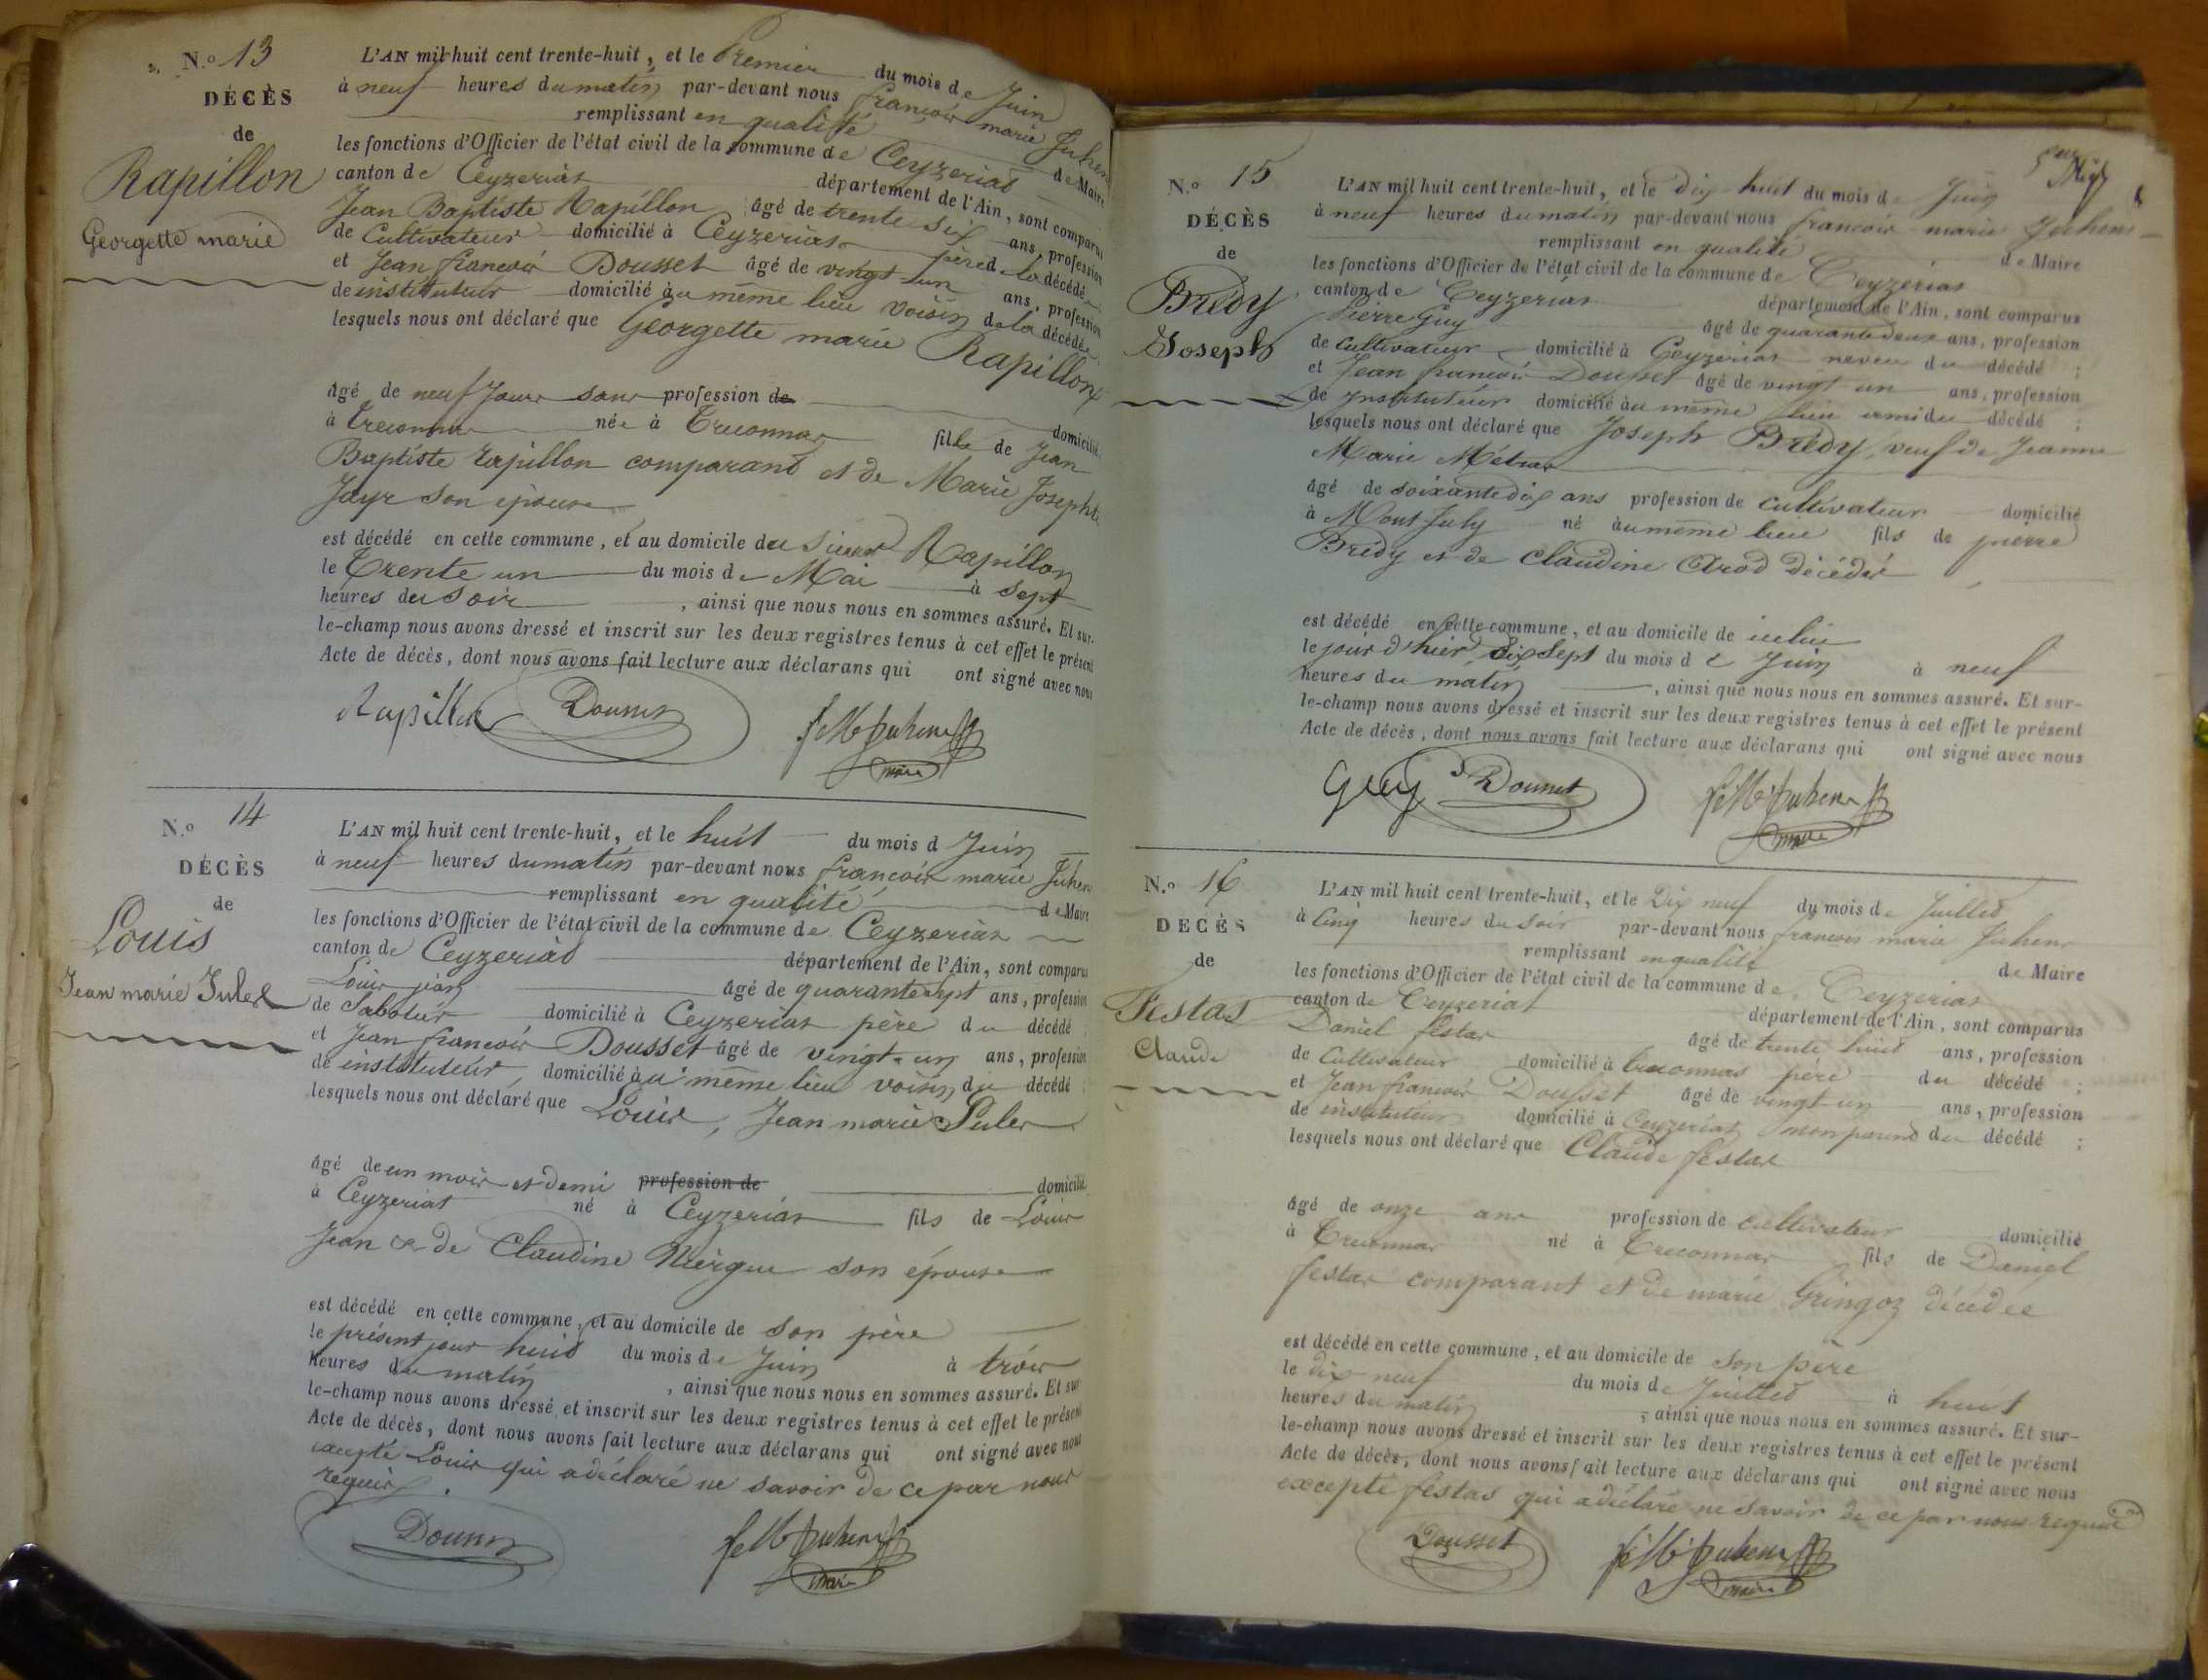 N.º 13
DÉCÈS
de
Rapillon
Georgette marie
L'AN mil huit cent trente-huit, et le Premier du mois de Juin
à neuf heures du matin par-devant nous francois marie Juhen
remplissant en qualité de Maire
les fonctions d'Officier de l'état civil de la commune de Ceyzeriat
canton de Ceyzeriat département de l'Ain, sont comparus
Jean Baptiste Rapillon âgé de trente six ans, profession
de Cultivateur domicilié à Ceyzeriat père de la décédée
et Jean francois Dousset âgé de vingt-un ans, profession
de instituteur domicilié au même lieu voisin de la décédée
lesquels nous ont déclaré que Georgette marie Rapillon
âgé de neuf Jours sans profession de domicilié
à Treconnas née à Treconnas fille de Jean
Baptiste Rapillon comparant et de Marie Josephte
Jayr son épouse
est décédé en cette commune, et au domicile du sieur Rapillon
le Trente un du mois de Mai à sept
heures du soir, ainsi que nous nous en sommes assuré. Et sur-
le-champ nous avons dressé et inscrit sur les deux registres tenus à cet effet le présent
Acte de décès, dont nous avons fait lecture aux déclarans qui ont signé avec nous
Rapillon Dousset
maire
N.º 14
DÉCÈS
de
Louis
Jean marie
L'AN mil huit cent trente-huit, et le huit du mois d Juin
à neuf heures du matin par-devant nous francois marie Juhen
remplissant en qualité de Maire
les fonctions d'Officier de l'état civil de la commune de Ceyzeriat
canton de Ceyzeriat département de l'Ain, sont comparus
Louis jean âgé de quarante sept ans, profession
de Sabotier domicilié à Ceyzeriat père du décédé
et Jean francois Dousset âgé de vingt-un ans, profession
de instituteur, domicilié au même lieu voisin du décédé
lesquels nous ont déclaré que Louis, Jean marie
âgé de un mois et demi profession de domicilié
à Ceyzeriat né à Ceyzeriat fils de Louis
Jean & de Claudine son épouse
est décédé en cette commune, et au domicile de son père
le présent jour huit du mois de Juin à trois
heures du matin, ainsi que nous nous en sommes assuré. Et sur
le-champ nous avons dressé et inscrit sur les deux registres tenus à cet effet le présent
Acte de décès, dont nous avons fait lecture aux déclarans qui ont signé avec nous
excepté Louis qui a déclaré ne savoir de ce par nous
requis.
Dousset
maire
N.º 15
DÉCÈS
de
Brédy
Joseph
L'AN mil huit cent trente-huit, et le dix huit du mois de Juin
à neuf heures du matin par-devant nous francois marie Juhen
remplissant en qualité de Maire
les fonctions d'Officier de l'état civil de la commune de Ceyzeriat
canton de Ceyzeriat département de l'Ain, sont comparus
Pierre Guy âgé de quarante deux ans, profession
de cultivateur domicilié à Ceyzeriat neveu du décédé ;
et Jean francois Dousset âgé de vingt un ans, profession
de Instituteur domicilié au même lieu ami du décédé ;
lesquels nous ont déclaré que Joseph Brédy, veuf de Jeanne
Marie
âgé de soixante dix ans profession de cultivateur domicilié
à Mont July né au même lieu fils de pierre
Brédy et de Claudine décédés
est décédé en cette commune, et au domicile de
le jour d'hier dix sept du mois d e Juin à neuf
heures du matin, ainsi que nous nous en sommes assuré. Et sur-
le-champ nous avons dressé et inscrit sur les deux registres tenus à cet effet le présent
Acte de décès, dont nous avons fait lecture aux déclarans qui ont signé avec nous
Guy Dousset
maire
N.º 16
DÉCÈS
de
Festas
Claude
L'AN mil huit cent trente-huit, et le Dix neuf du mois de Juillet
à Cinq heures du soir par-devant nous francois marie Juhen
remplissant en qualité de Maire
les fonctions d'Officier de l'état civil de la commune de Ceyzeriat
canton de Ceyzeriat département de l'Ain, sont comparus
Daniel festas âgé de trente huit ans, profession
de Cultivateur domicilié à treconnas père du décédé ;
et Jean francois Dousset âgé de vingt-un ans, profession
de instituteur domicilié à Ceyzeriat non parent du décédé ;
lesquels nous ont déclaré que Claude festas
âgé de onze ans profession de cultivateur domicilié
à Treconnas né à Treconnas fils de Daniel
festas comparant et de marie Gringoz décédée
est décédé en cette commune, et au domicile de son père
le dix neuf du mois de Juillet à huit
heures du matin, ainsi que nous nous en sommes assuré. Et sur-
le-champ nous avons dressé et inscrit sur les deux registres tenus à cet effet le présent
Acte de décès, dont nous avons fait lecture aux déclarans qui ont signé avec nous
excepté festas qui a déclaré ne savoir de ce par nous requis
Dousset
maire